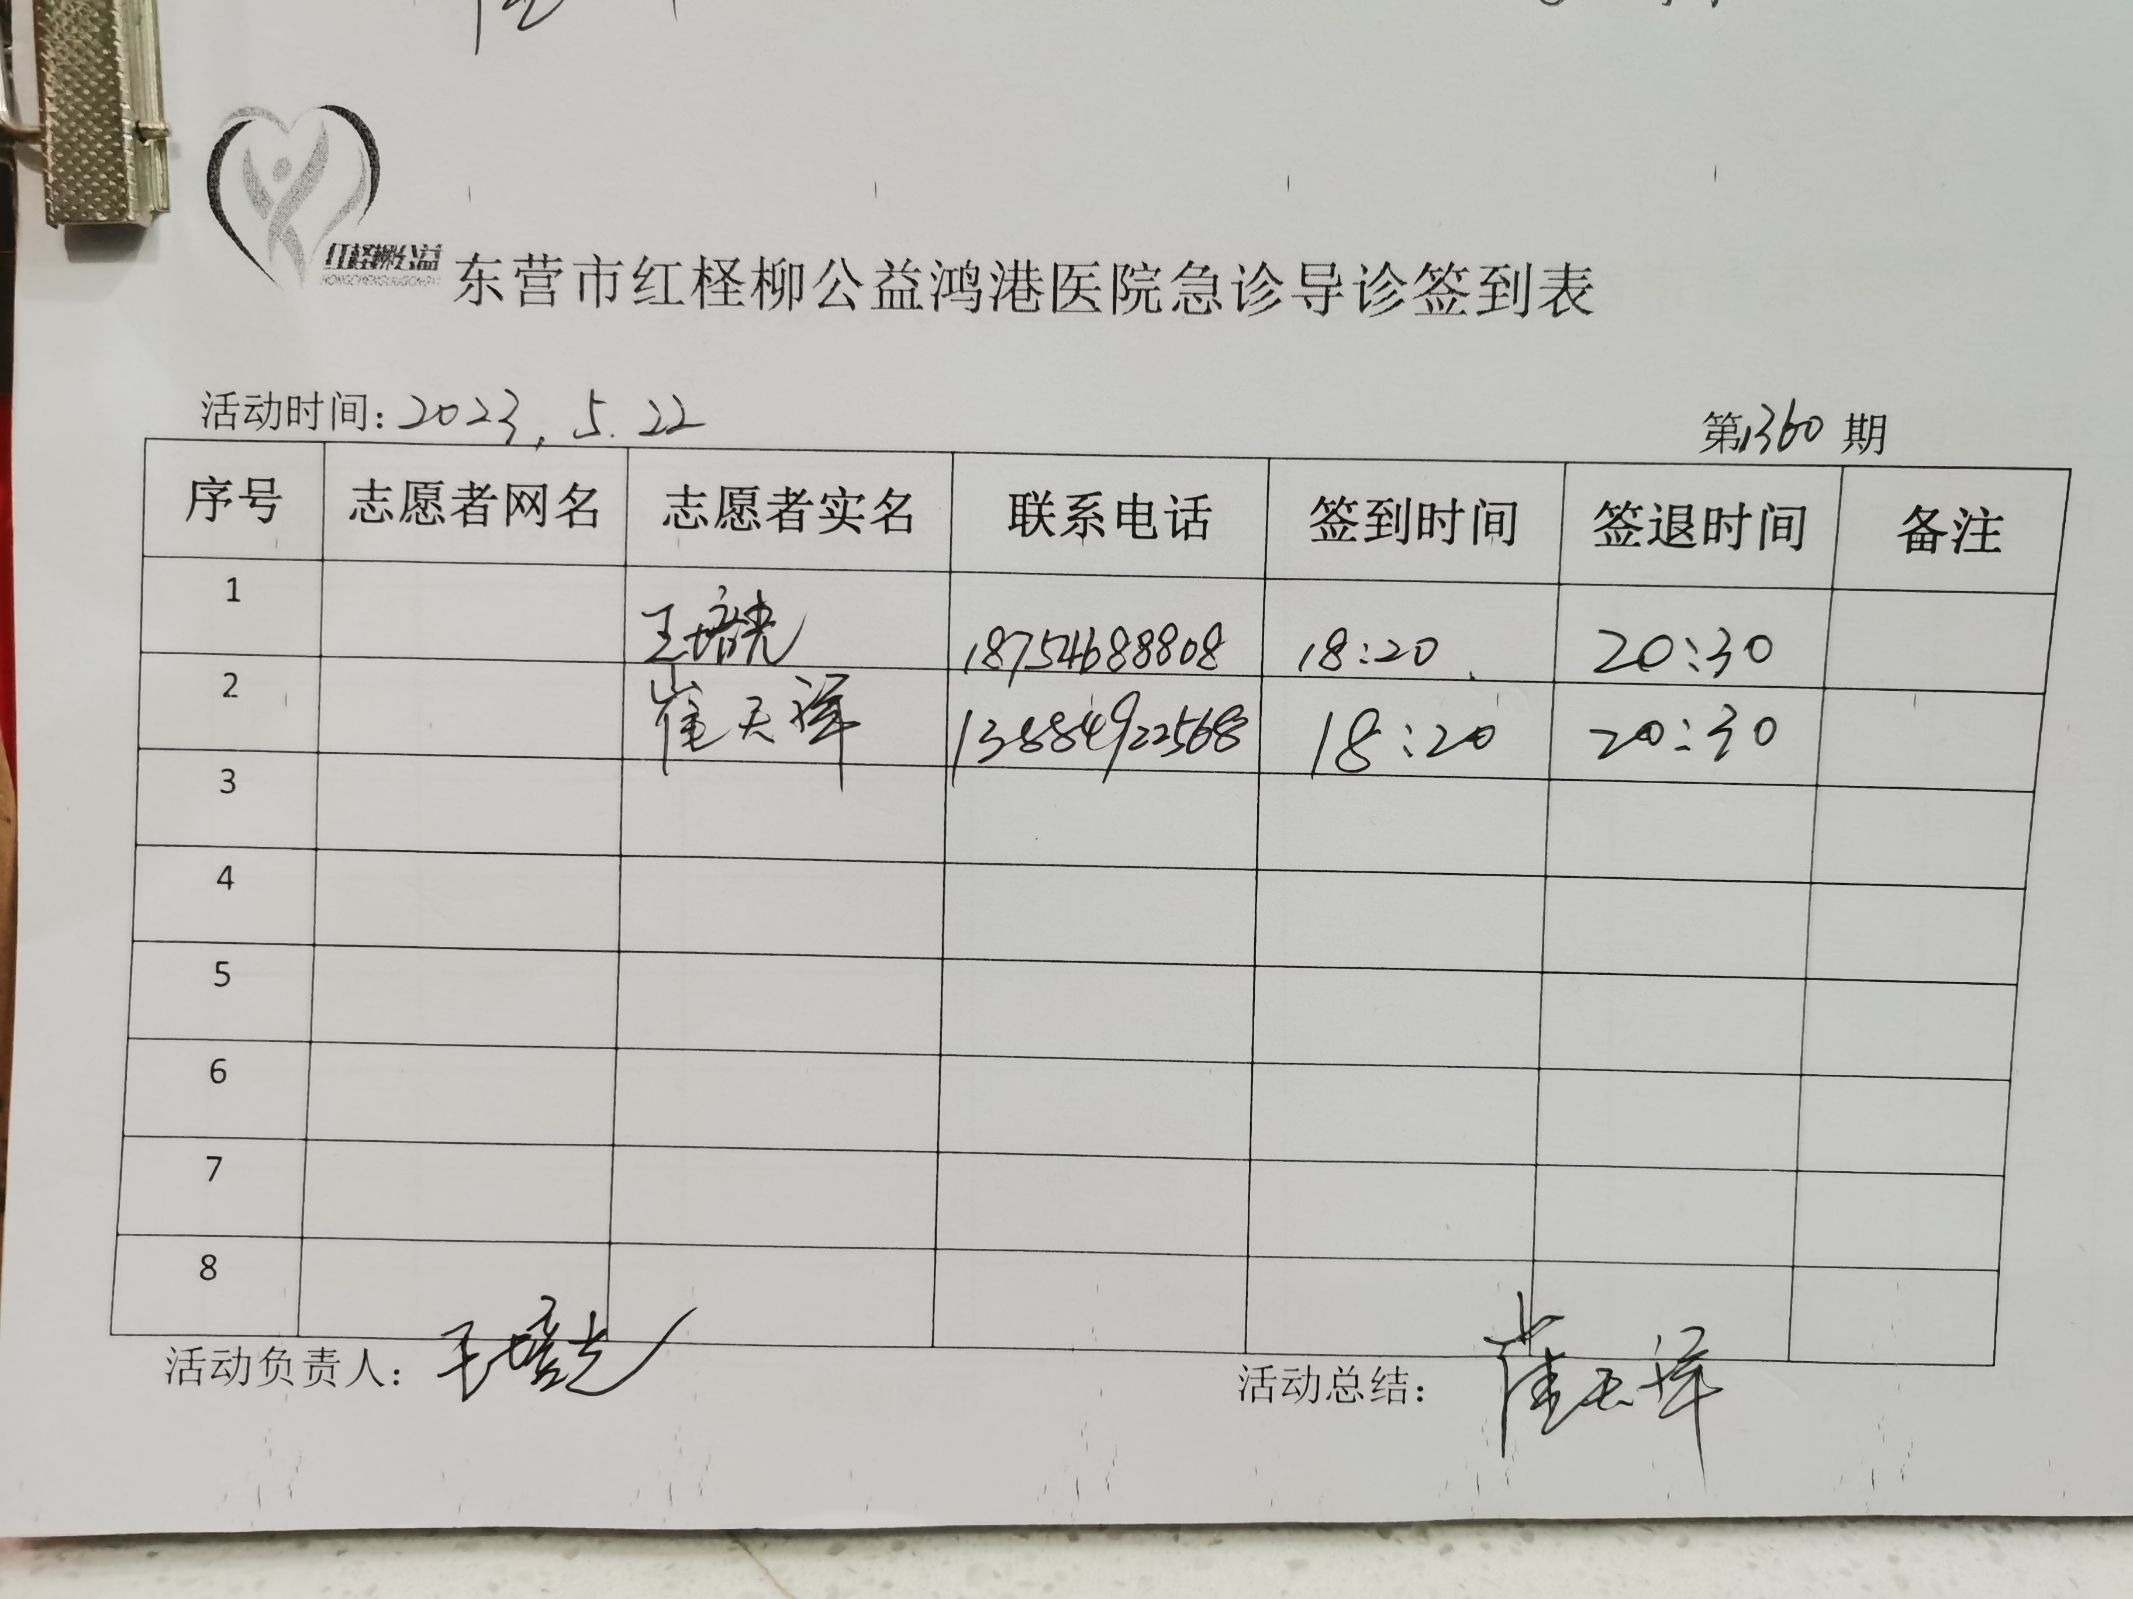 红柽柳公益
东营市红柽柳公益鸿港医院急诊导诊签到表
活动时间: 2023.5.22 第1360期
序号 志愿者网名 志愿者实名 联系电话 签到时间 签退时间 备注
1 王培光 18754688808 18:20 20:30
2 崔天祥 13884922568 18:20 20:30
3
4
5
6
7
8
活动负责人: 王培光 活动总结: 崔天祥